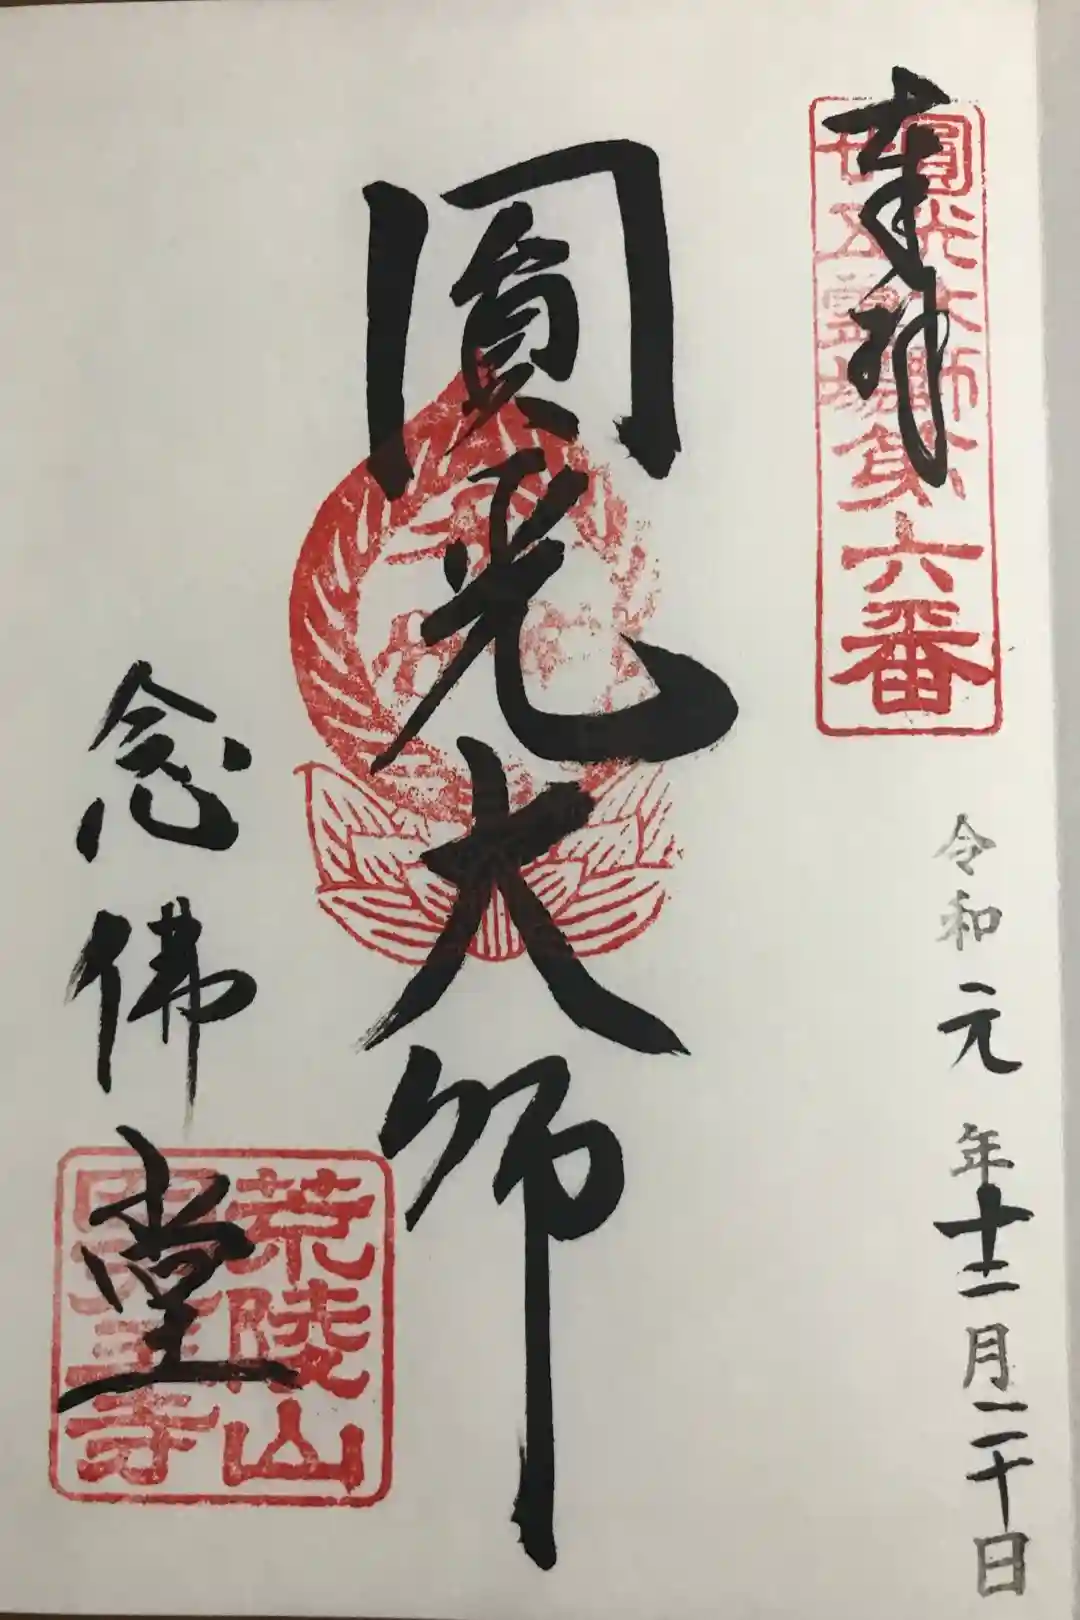 奉拝
圓光大師
廿五霊場第六番
令和元年十二月二十日
圓光大師
念佛堂
荒陵山
四天王寺